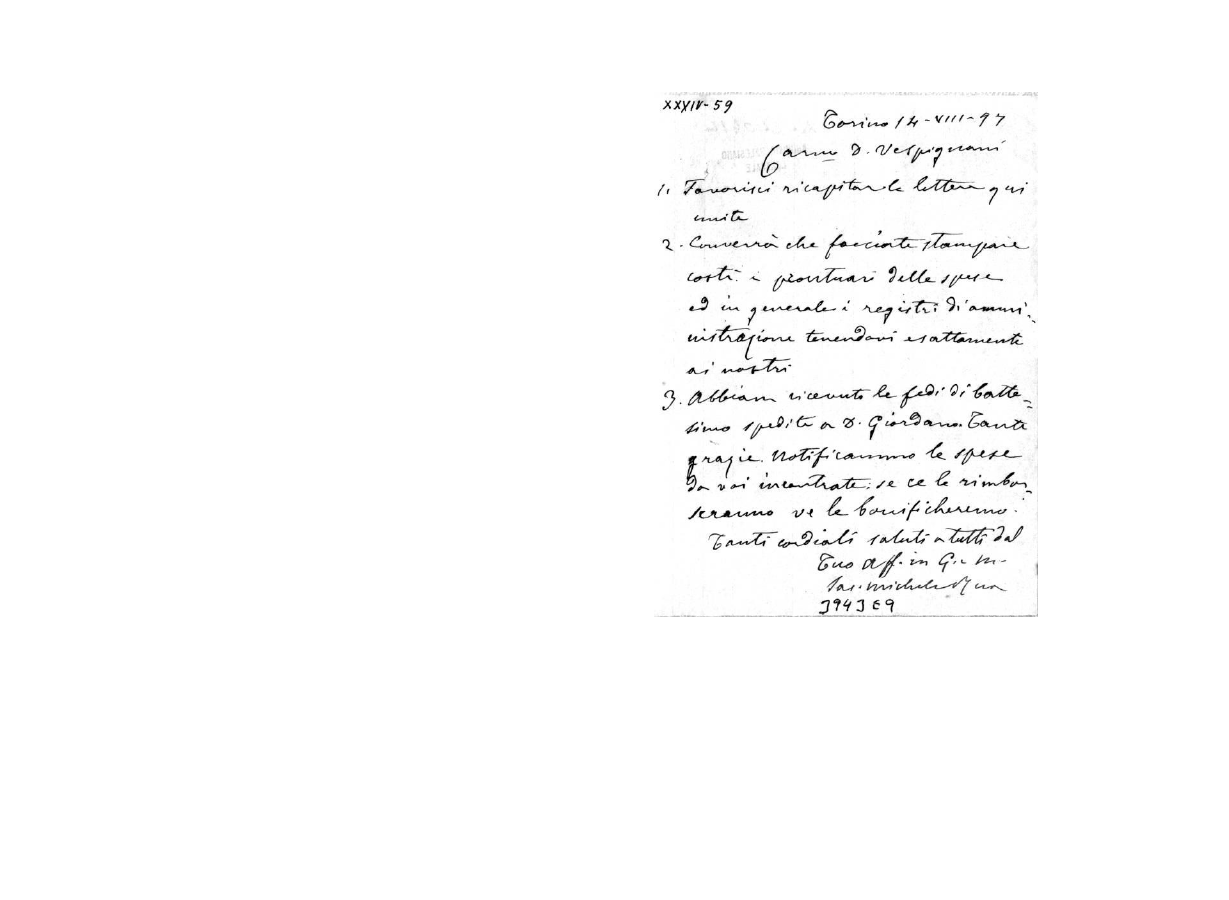 XXXIV-59
Torino 14-VIII-97
Carmo D. Vespignani
1. Favorisci ricapitar le lettere qui
unite
2. Converrà che facciate stampare
costì i prontuari delle spese
ed in generale i registri di ammi-
nistrazione tenendovi esattamente
ai nostri
3. Abbiam ricevuto le fedi di batte=
simo spedite a D. Giordano. Tante
grazie. Notificammo le spese
da voi incontrate: se ce le rimbor=
seranno ve le bonificheremo.
Tanti cordiali saluti a tutti dal
Tuo aff. in G. e M.
Sac. Michele Rua
3943 E9